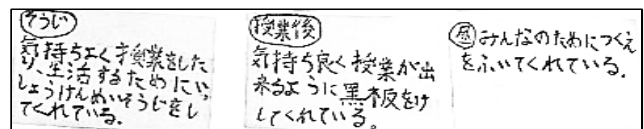 そうじ
気持ちよく授業をした
り、生活するためにいっ
しょうけんめいそうじをし
てくれている。
授業後
気持ち良く授業が出
来るように黒板をけ
してくれている。
昼 みんなのためにつくえ
をふいてくれている。